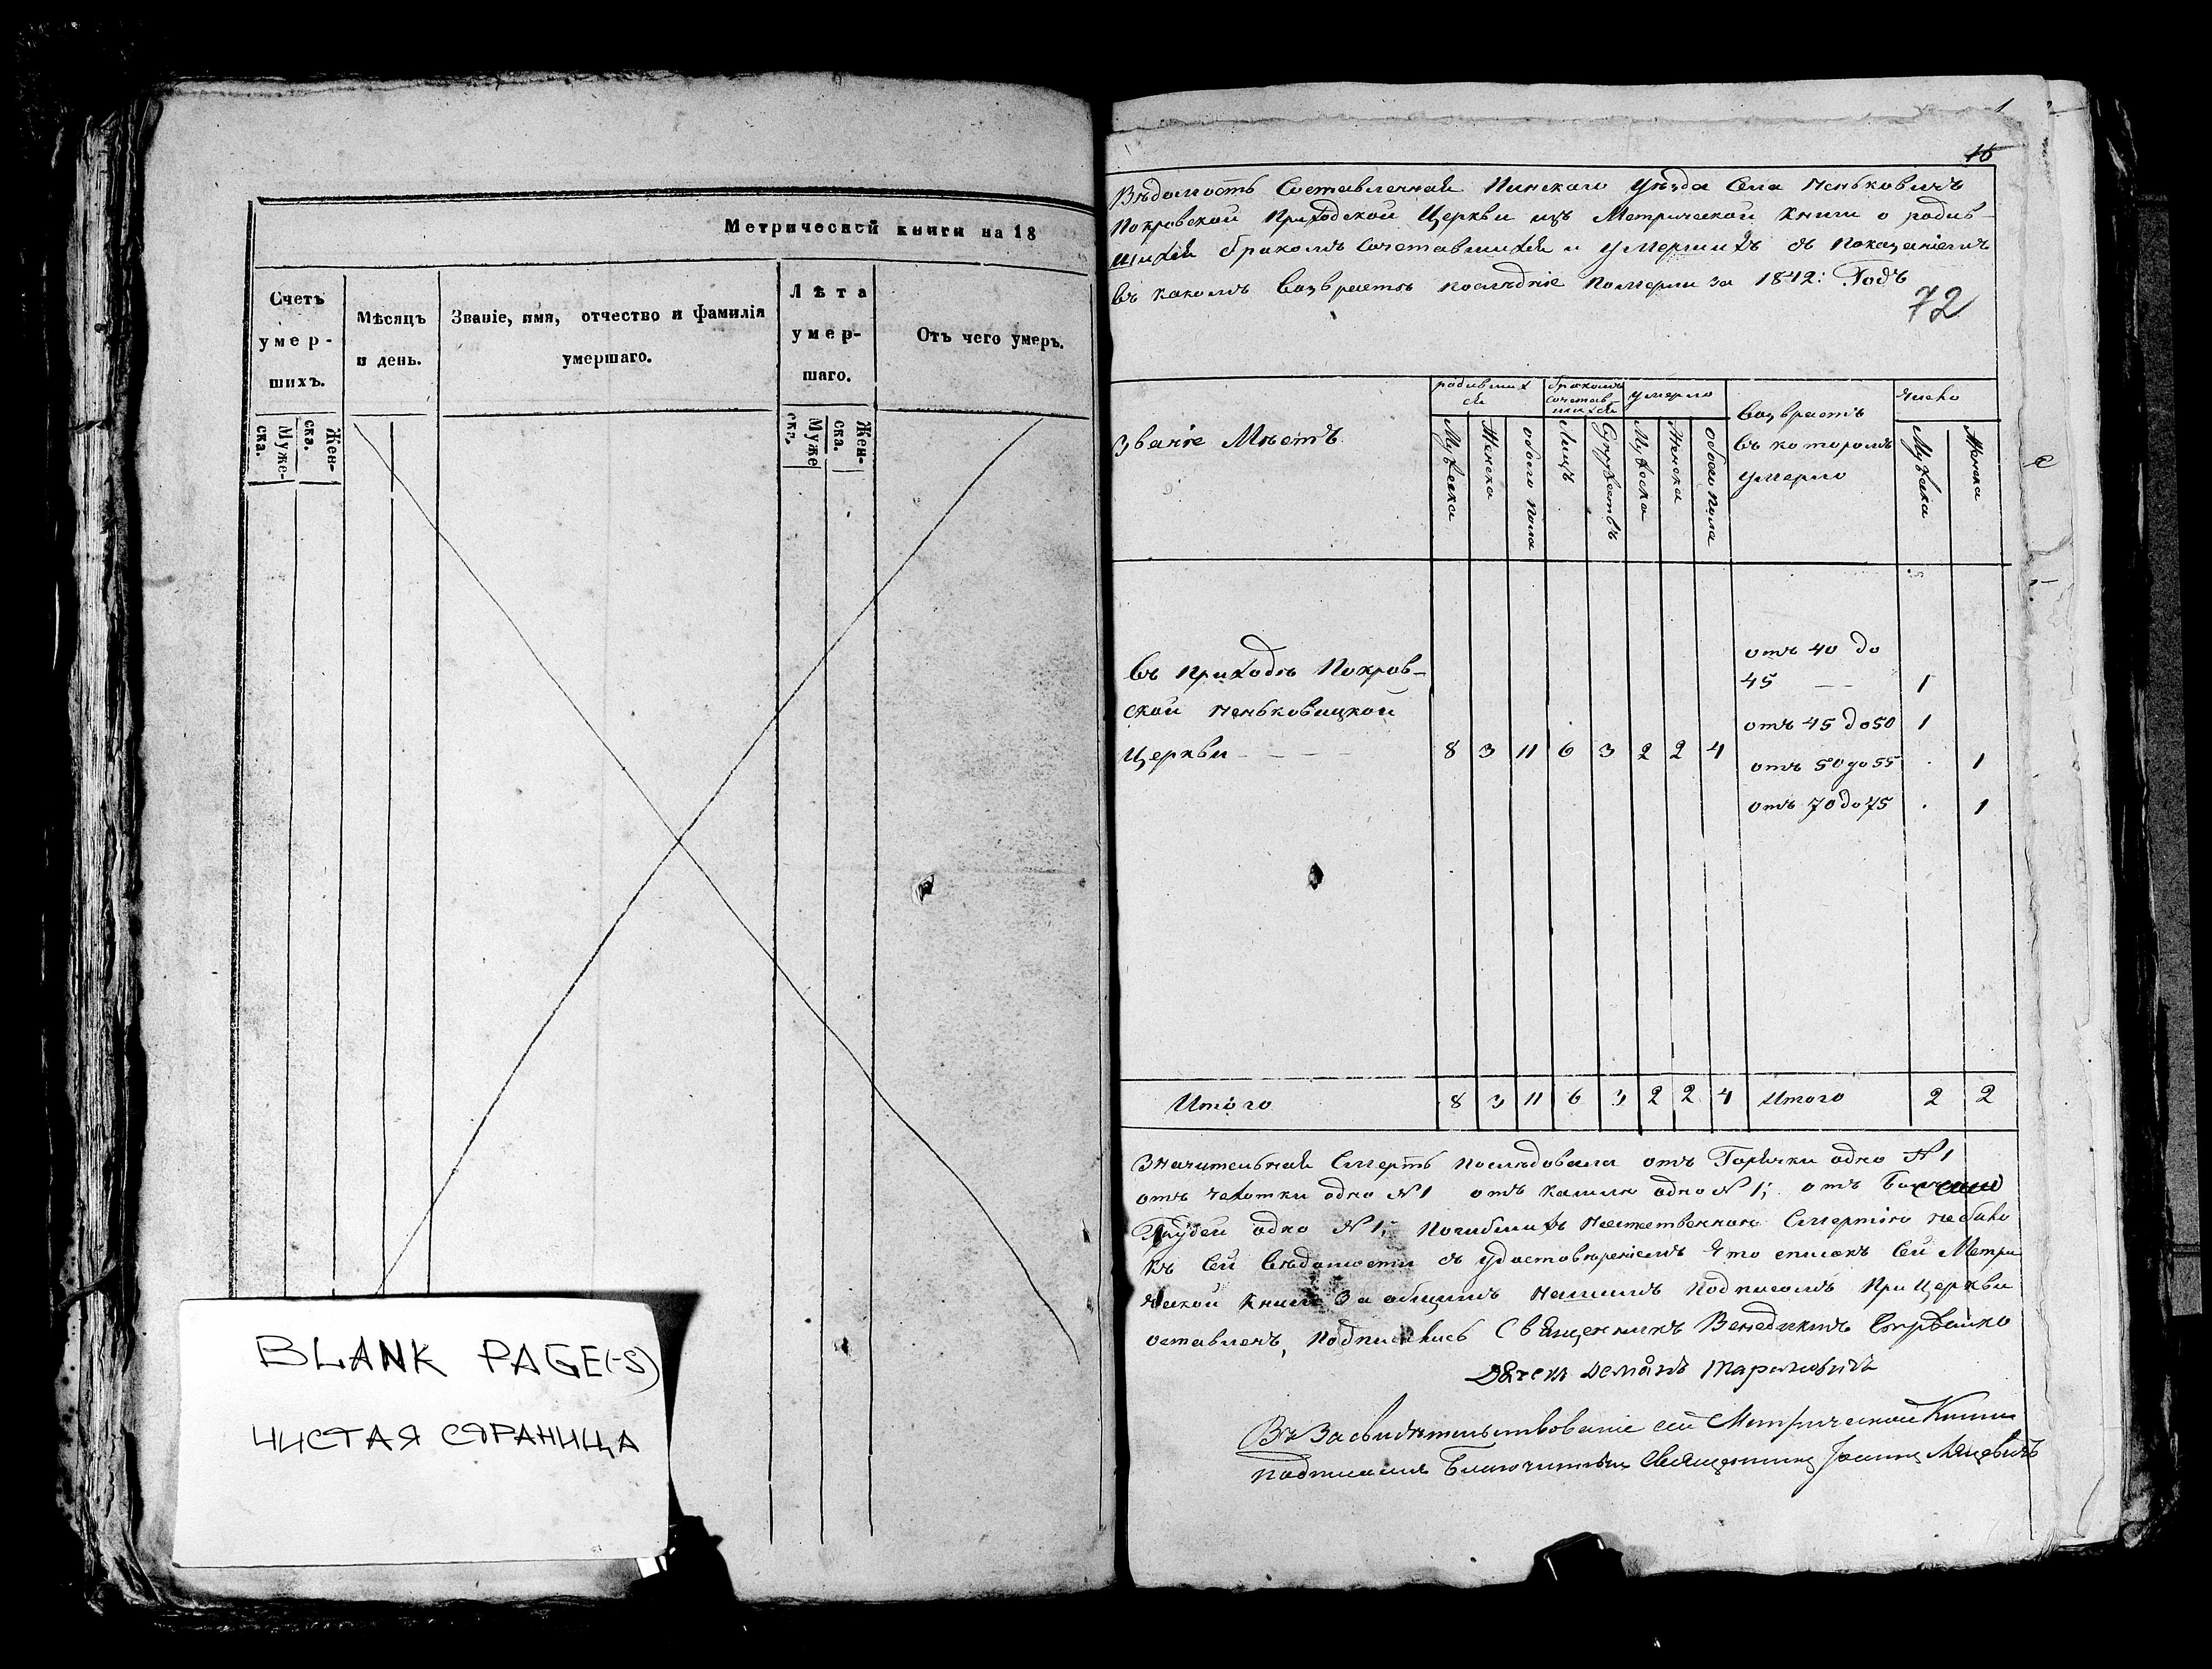 Метрической книги на 18
Счетъ умер-шихъ.
Мѣсяцъ и день.
Званіе, имя, отчество и фамилія умершаго.
Лѣта умер-шаго.
Отъ чего умеръ.
Муже-ска.
Жен-ска.
Муже ска.
Жен-ска.
BLANK PAGE(-S)
ЧИСТАЯ СТРАНИЦА
1
16
Вѣдомость Составленная Пинскаго Уѣзда Села Меньковичь
Покровской Приходской Церкви изъ Метрической Книги о родив-
шихся бракомъ Сочетавшихся и умершихъ съ показаніемъ
въ какомъ Возврастѣ послѣдніе померли за 1842: Годъ
72
Званіе Мѣстъ
родившихся
бракомъ сочетавшихся
умерло
Возврастъ
въ которомъ
умерло
Число
Мужеска
Женска
обоего пола
Лицъ
Супружествъ
Мужеска
Женска
обоего пола
Мужска
Женска
Въ приходѣ Покров-
ской Меньковицкой
Церкви 8 3 11 6 3 2 2 4
отъ 40 до
45 — — 1
отъ 45 до 50 1
отъ 50 до 55 . 1
отъ 70 до 75 . 1
Итого 8 3 11 6 3 2 2 4 Итого 2 2
Значительная Смерть послѣдовала отъ Горячки одно №1
отъ чахотки одно №1 отъ кашлю одно №1; отъ
Грудей одно №1; Погибшихъ Смертію небыло
Къ Сей Вѣдомости съ удостовѣреніемъ что списокъ Сей Метри
ческой Книги За общимъ Нашимъ Подписомъ При Церкви
оставленъ, подписались Священникъ Венедиктъ
Дячекъ Демянъ Тарймовичъ
Въ Засвидѣтельствованіе сей Метрической Книги
подписался Благочинный Священникъ Іоаннъ